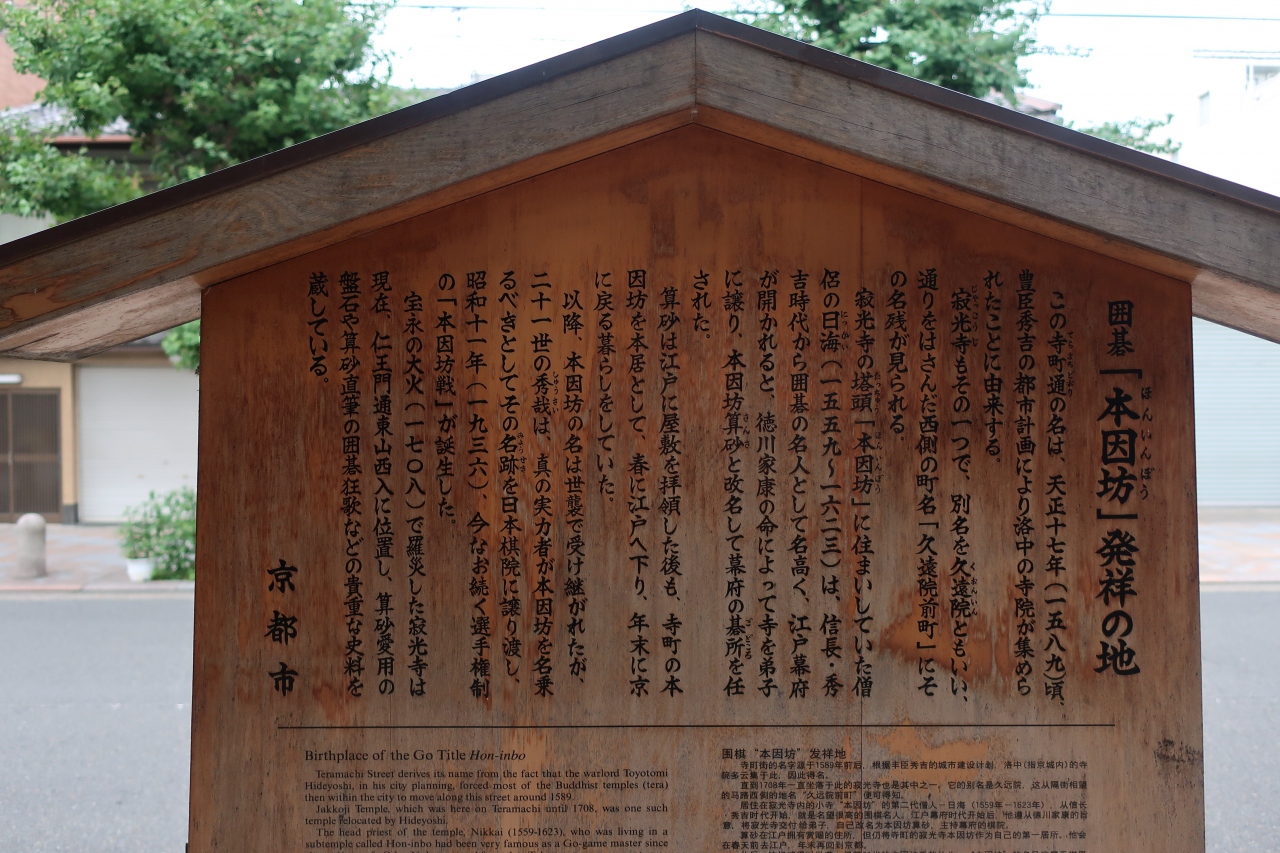 囲碁「本因坊」発祥の地
この寺町通の名は、天正十七年（一五八九）頃、
豊臣秀吉の都市計画により洛中の寺院が集めら
れたことに由来する。
寂光寺もその一つで、別名を久遠院ともいい、
通りをはさんだ西側の町名「久遠院前町」にそ
の名残が見られる。
寂光寺の塔頭「本因坊」に住まいしていた僧
侶の日海（一五五九～一六二三）は、信長・秀
吉時代から囲碁の名人として名高く、江戸幕府
が開かれると、徳川家康の命によって寺を弟子
に譲り、本因坊算砂と改名して幕府の碁所を任
された。
算砂は江戸に屋敷を拝領した後も、寺町の本
因坊を本居として、春に江戸へ下り、年末に京
に戻る暮らしをしていた。
以降、本因坊の名は世襲で受け継がれたが、
二十一世の秀哉は、真の実力者が本因坊を名乗
るべきとしてその名跡を日本棋院に譲り渡し、
昭和十一年（一九三六）、今なお続く選手権制
の「本因坊戦」が誕生した。
宝永の大火（一七〇八）で羅災した寂光寺は
現在、仁王門通東山西入に位置し、算砂愛用の
盤石や算砂直筆の囲碁狂歌などの貴重な史料を
蔵している。
京都市
Birthplace of the Go Title Hon-inbo
Teramachi Street derives its name from the fact that the warlord Toyotomi
Hideyoshi, in his city planning, forced most of the Buddhist temples (tera)
then within the city to move along this street around 1589.
Jakkoji Temple, which was here on Teramachi until 1708, was one such
temple relocated by Hideyoshi.
The head priest of the temple, Nikkai (1559-1623), who was living in a
subtemple called Hon-inbo had been very famous as a Go-game master since
围棋“本因坊”发祥地
寺町街的名字源于1589年前后，根据丰臣秀吉的城市建设计划，洛中(指京城内)的寺
院多云集于此，因此得名。
直到1708年一直坐落于此的寂光寺也是其中之一，它的别名是久远院，这从隔街相望
的马路西侧的地名“久远院前町”便可得知。
居住在寂光寺内的小寺“本因坊”的第二代僧人－日海（1559年－1623年），从信长
・秀吉时代开始，就是名望很高的围棋名人。江户幕府时代开始后，他遵从德川家康的旨
意，将寂光寺交付给弟子，自己改名为本因坊算砂，主持幕府的棋院。
算砂在江户拥有赏赐的住所，但仍将寺町的寂光寺本因坊作为自己的第一居所。他会
在春天前去江户，年末再回到京都。